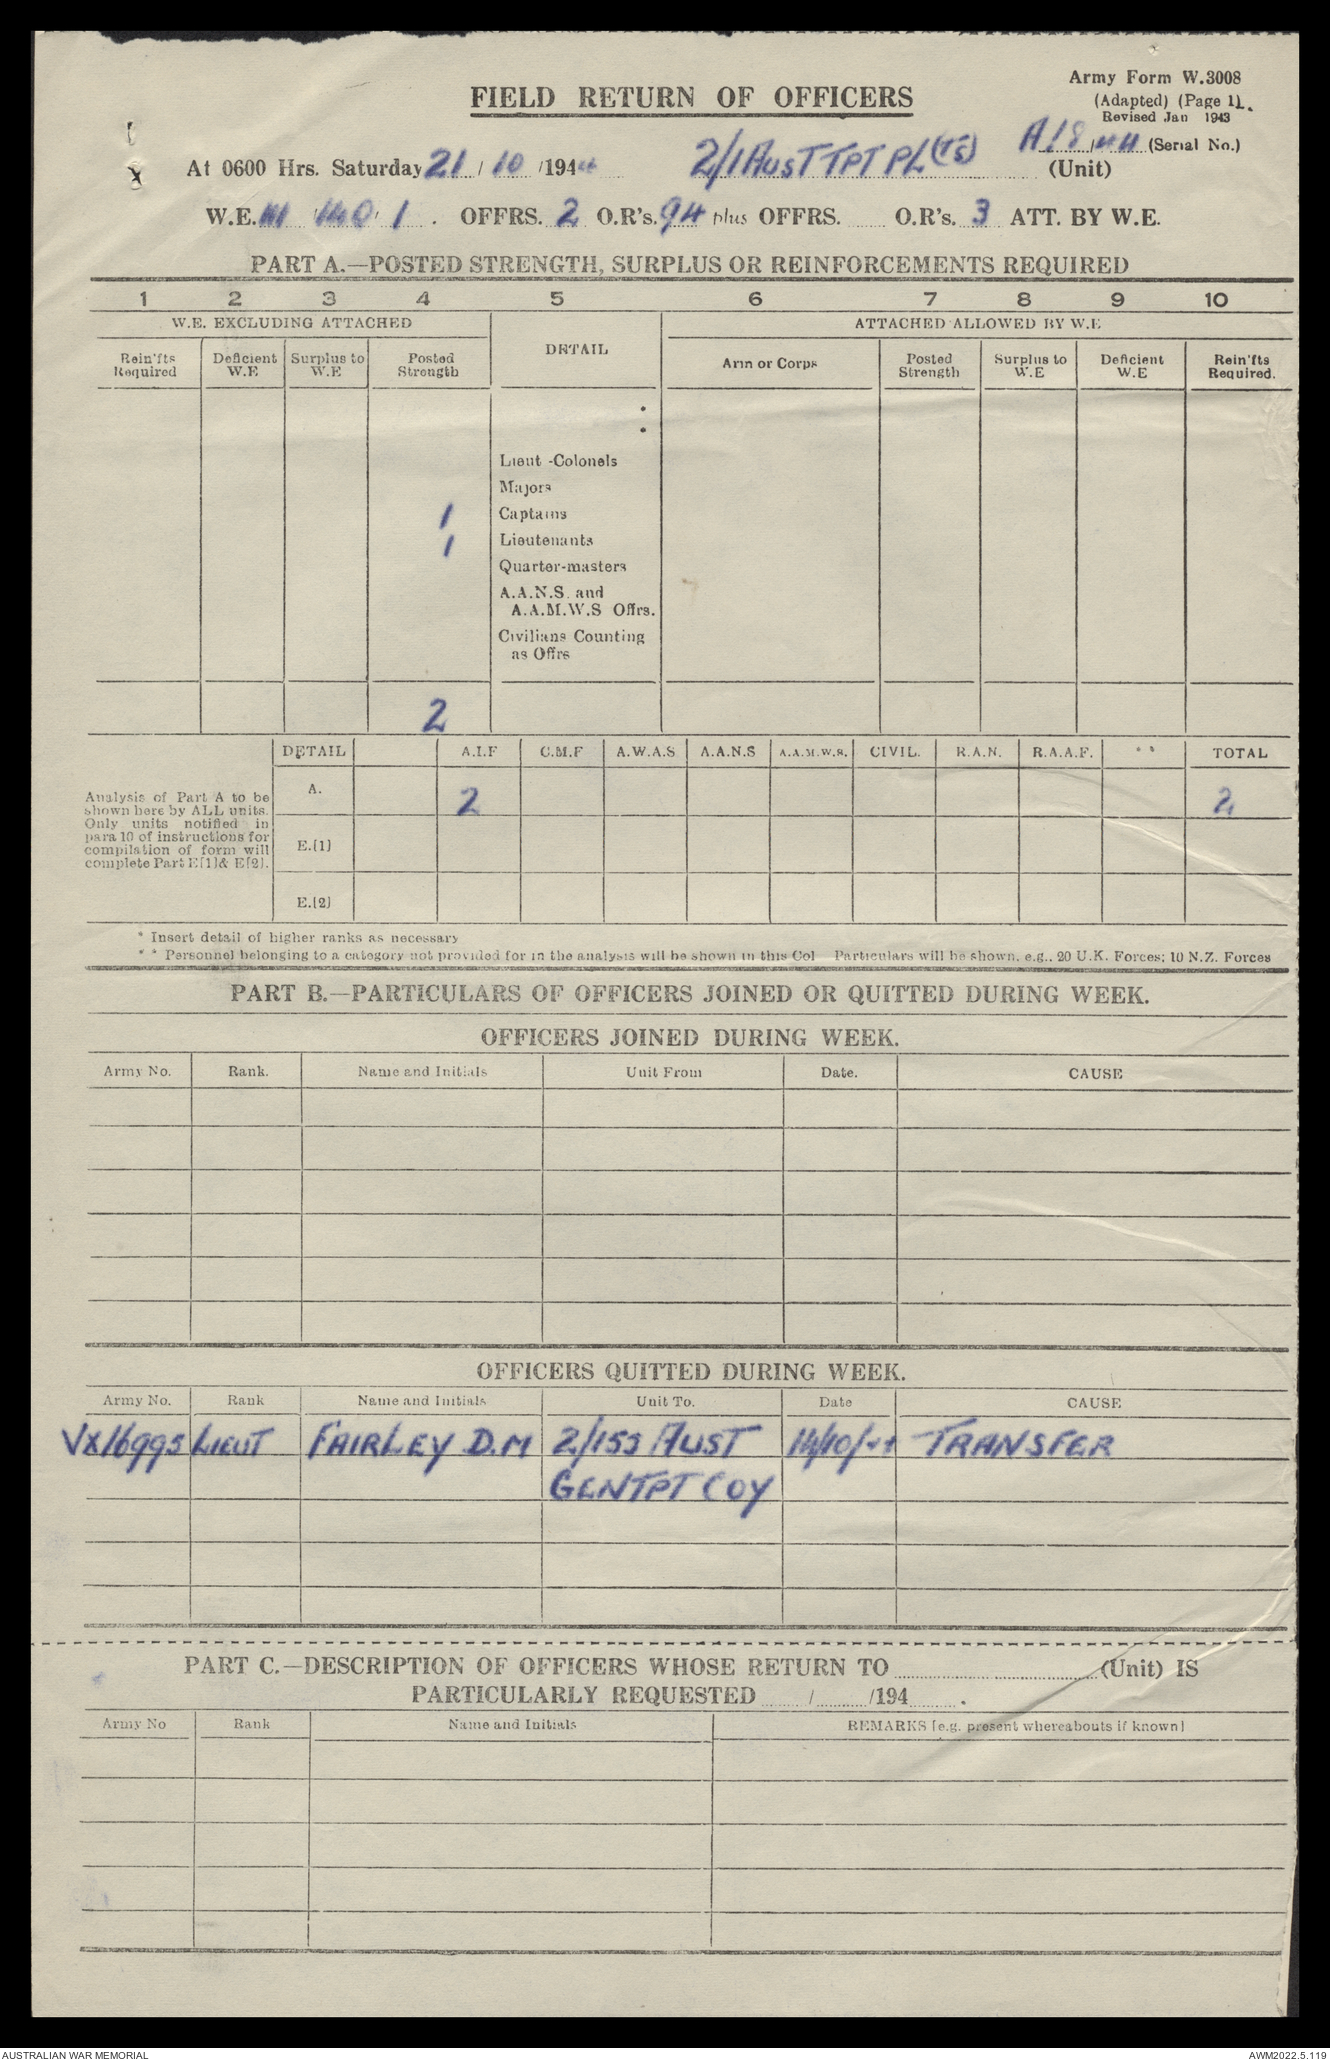 Army Form W.3008
FIELD RETURN OF OFFICERS
(Adapted) (Page 1).
Revised Jan 1943
A/8/44 (Serial No.)
At 0600 Hrs. Saturday 21/10/1944 2/1 AUST TPT PL (TS) (Unit)
W.E. III /140/ 1. OFFRS. 2 O.R's. 94 plus OFFRS. ...... O.R's. 3 ATT. BY W.E.
PART A.—POSTED STRENGTH, SURPLUS OR REINFORCEMENTS REQUIRED
1 2 3 4 5 6 7 8 9 10
W.E. EXCLUDING ATTACHED DETAIL ATTACHED ALLOWED BY W.E
Rein'fts Required Deficient W.E Surplus to W.E Posted Strength Arm or Corps Posted Strength Surplus to W.E Deficient W.E Rein'fts Required.
*
*
Lieut -Colonels
Majors
1 Captains
1 Lieutenants
Quarter-masters
A.A.N.S. and
A.A.M.W.S Offrs.
Civilians Counting
as Offrs
2
DETAIL A.I.F C.M.F A.W.A.S A.A.N.S A.A.M.W.S. CIVIL. R.A.N. R.A.A.F. * * TOTAL
Analysis of Part A to be
shown here by ALL units.
Only units notified in
para 10 of instructions for
compilation of form will
complete Part E[1]& E[2].
A. 2 2
E.[1]
E.[2]
* Insert detail of higher ranks as necessary
* * Personnel belonging to a category not provided for in the analysis will be shown in this Col Particulars will be shown, e.g., 20 U.K. Forces; 10 N.Z. Forces
PART B.—PARTICULARS OF OFFICERS JOINED OR QUITTED DURING WEEK.
OFFICERS JOINED DURING WEEK.
Army No. Rank. Name and Initials Unit From Date. CAUSE
OFFICERS QUITTED DURING WEEK.
Army No. Rank Name and Initials Unit To. Date CAUSE
VX16995 LIEUT FAIRLEY D.M 2/153 AUST 14/10/44 TRANSFER
GENTPT COY
PART C.—DESCRIPTION OF OFFICERS WHOSE RETURN TO ............ (Unit) IS
PARTICULARLY REQUESTED ....../......./194.......
Army No Rank Name and Initials REMARKS [e.g. present whereabouts if known]
AUSTRALIAN WAR MEMORIAL AWM2022.5.119